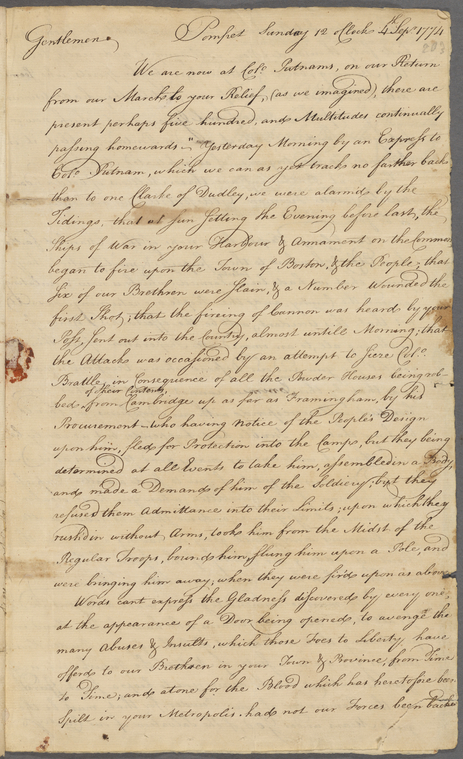 Gentlemen, Pomfret Sunday 12 oClock 4th Sepr 1774
We are now at Colo. Putnams, on our Return
from our March to your Relief, (as we imagined), there are
present perhaps five hundred, and Multitudes continually
passing homewards — Yesterday Morning by an Express to
Colo. Putnam, which we can as yet track no farther back
than to one Clarke of Dudley, we were alarmed by the
Tidings, that at sun Setting the Evening before last, the
Ships of War in your Harbour & Armament on the Common
began to fire upon the Town of Boston, & the People; that
Six of our Brethren were Slain, & a Number Wounded the
first Shot; that the fireing of Cannon was heard by your
Post, sent out into the Country, almost untill Morning; that
the Attack was occasioned by an attempt to seize Colo.
Brattle, in Consequence of all the Powder Houses being rob-
of their Contents
bed, from Cambridge up as far as Framingham, by his
Procurement — who having Notice of the People's Design
upon him, fled for Protection into the Camp, but they being
determined at all Events to take him, assembled in a Body,
and made a Demand of him of the Soldiery; but they
refused them Admittance into their Limits; upon which they
rushd in without Arms, took him from the Midst of the
Regular Troops, bound him, flung him upon a Pole, and
were bringing him away, when they were fired upon as above
Words cant express the Gladness discovered by every one,
at the appearance of a Door being opened, to avenge the
many Abuses & Insults, which those Foes to Liberty have
offerd to our Brethren in your Town & Province, from Time
to Time; and atone for the Blood which has heretofore been
Spilt in your Metropolis. had not our Forces been